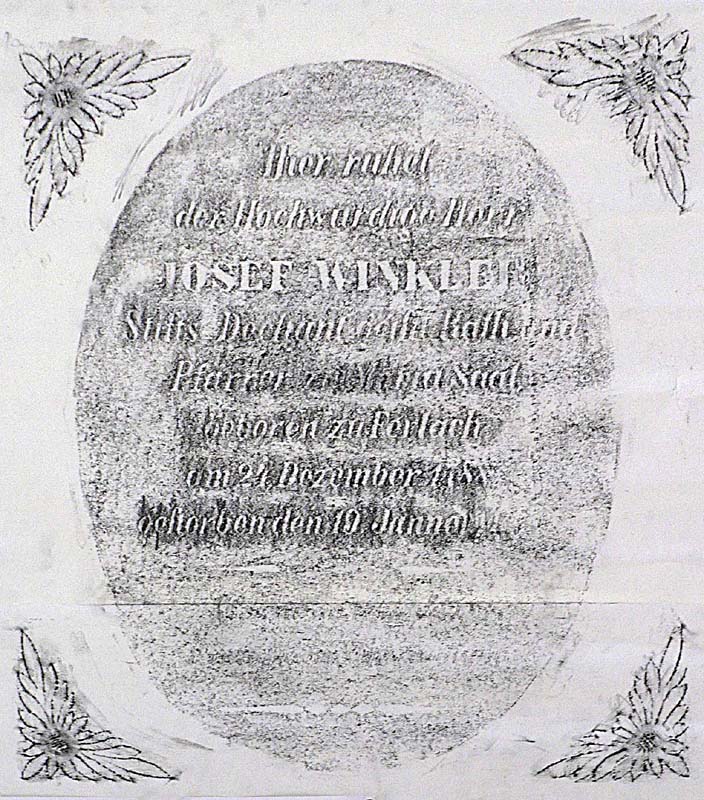 Hier ruhet
der Hochwürdige Herr
JOSEF WINKLER
Stifts Dechant Rath und
Pfarrer zu Maria Saal
geboren zu Ferlach
am 24 Dezember
gestorben den 19. Januar